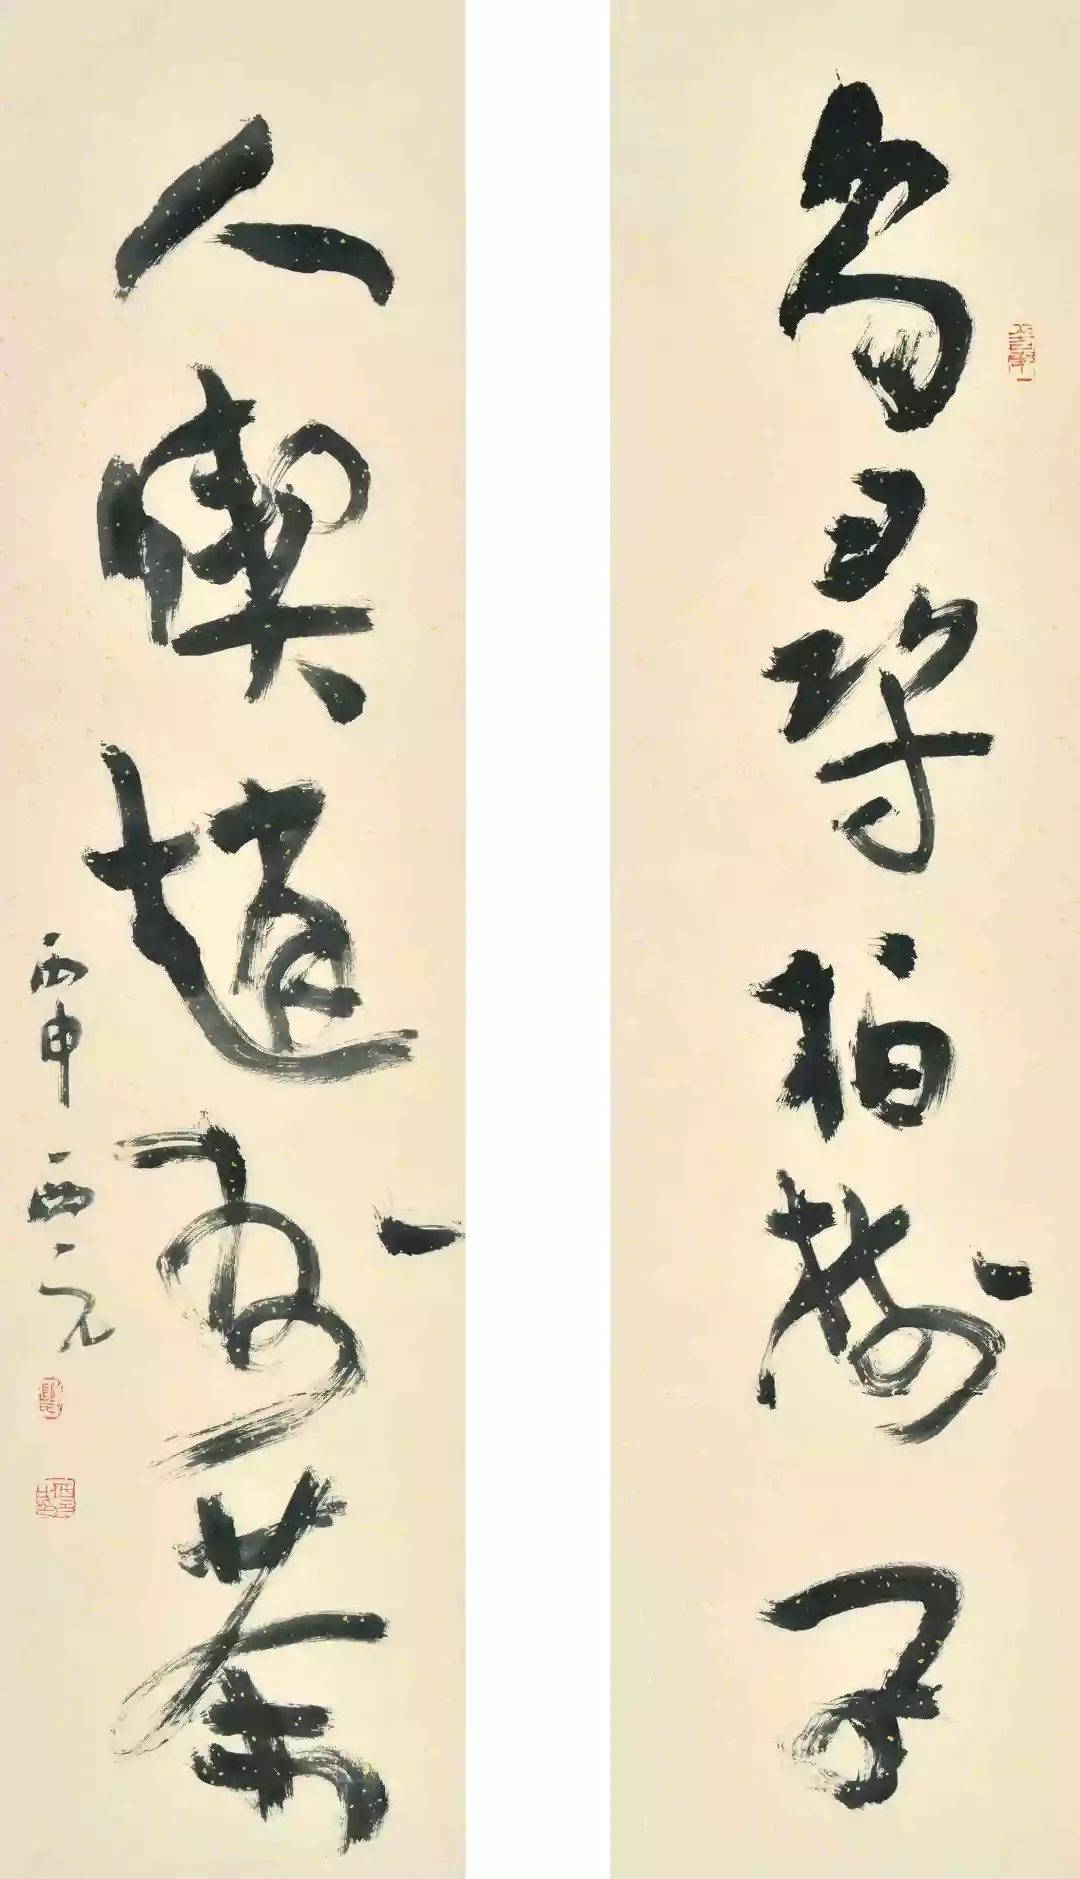 為尋柏樹子
人喫趙州茶
丙申 西元